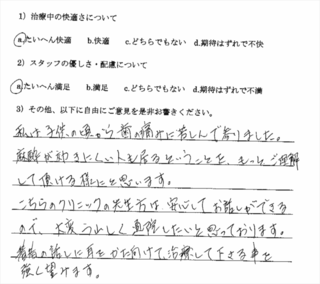 1）治療中の快適さについて
a.たいへん快適 b.快適 c.どちらでもない d.期待はずれで不快
2）スタッフの優しさ・配慮について
a.たいへん満足 b.満足 c.どちらでもない d.期待はずれで不満
3）その他、以下に自由にご意見を是非お書きください。
私は子供の頃から歯の痛みに苦しんで参りました。
麻酔が効きにくい人も居るということを、もっとご理解
して頂ける様にと思います。
こちらのクリニックの先生方は、安心してお話しができる
ので、大変うれしく
と思っております。
の話しに耳をかたむけて、治療して下さる事を
強く望けます。